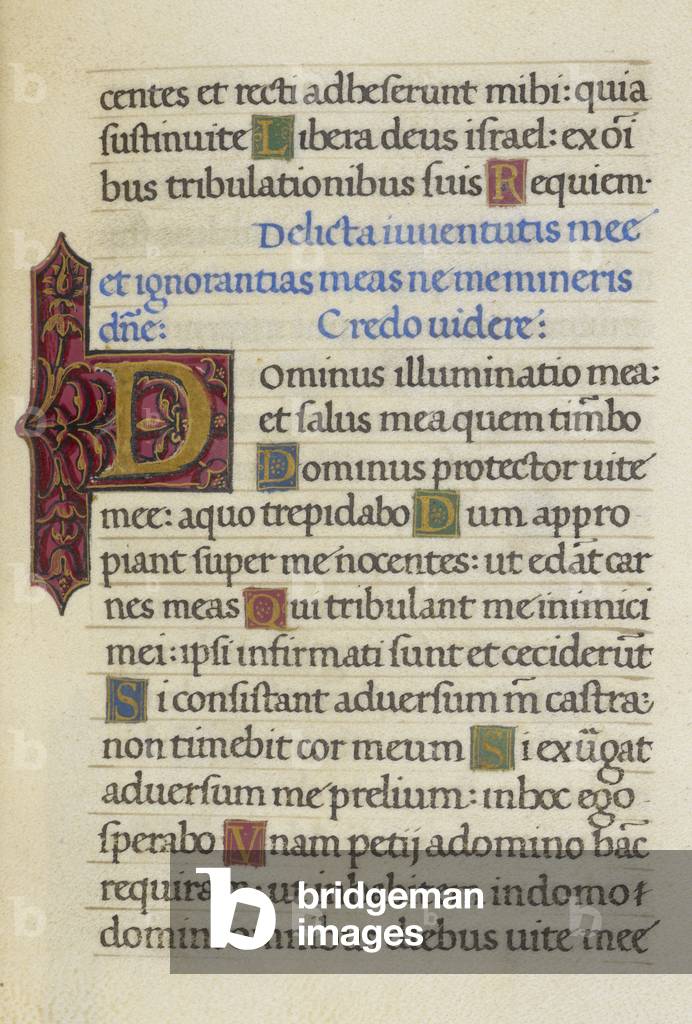 centes et recti adheserunt mihi: quia
sustinui te Libera deus israel: ex oi͂
bus tribulationibus suis Requiem.
Delicta iuuentutis mee
et ignorantias meas ne memineris
dn̄e: Credo uidere:
Dominus illuminatio mea:
et salus mea quem tim̄bo
Dominus protector uite
mee: a quo trepidabo Dum appro
piant super me nocentes: ut edāt car
nes meas Qui tribulant me inimici
mei: ipsi infirmati sunt et ceciderūt
Si consistant aduersum m̄ castra:
non timebit cor meum Si exūgat
aduersum me prelium: in hoc ego
sperabo Vnam petij a domino hāc
requiram: ut inhabitem in domo
domini omnibus diebus uite mee
bridgeman
images